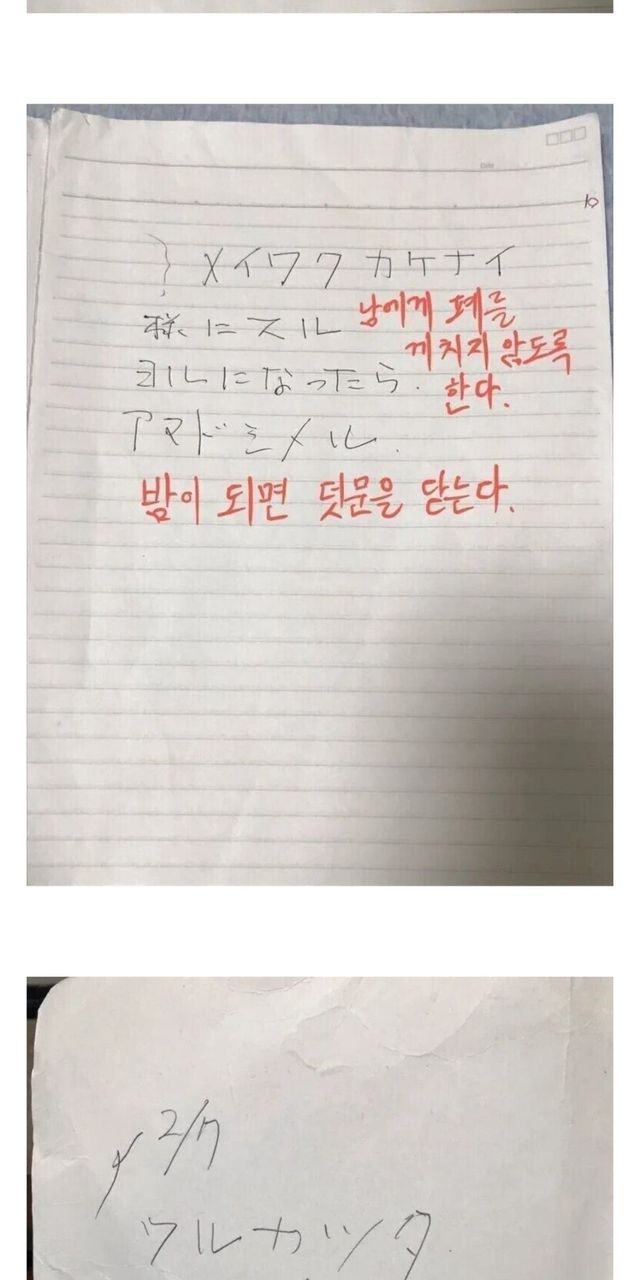 Date
10
メイワクカケナイ
様にスル
남에게 폐를
끼치지 않도록
한다.
ヨルになったら.
アマドシメル.
밤이 되면 덧문을 닫는다.
2/7
ワルカッタ